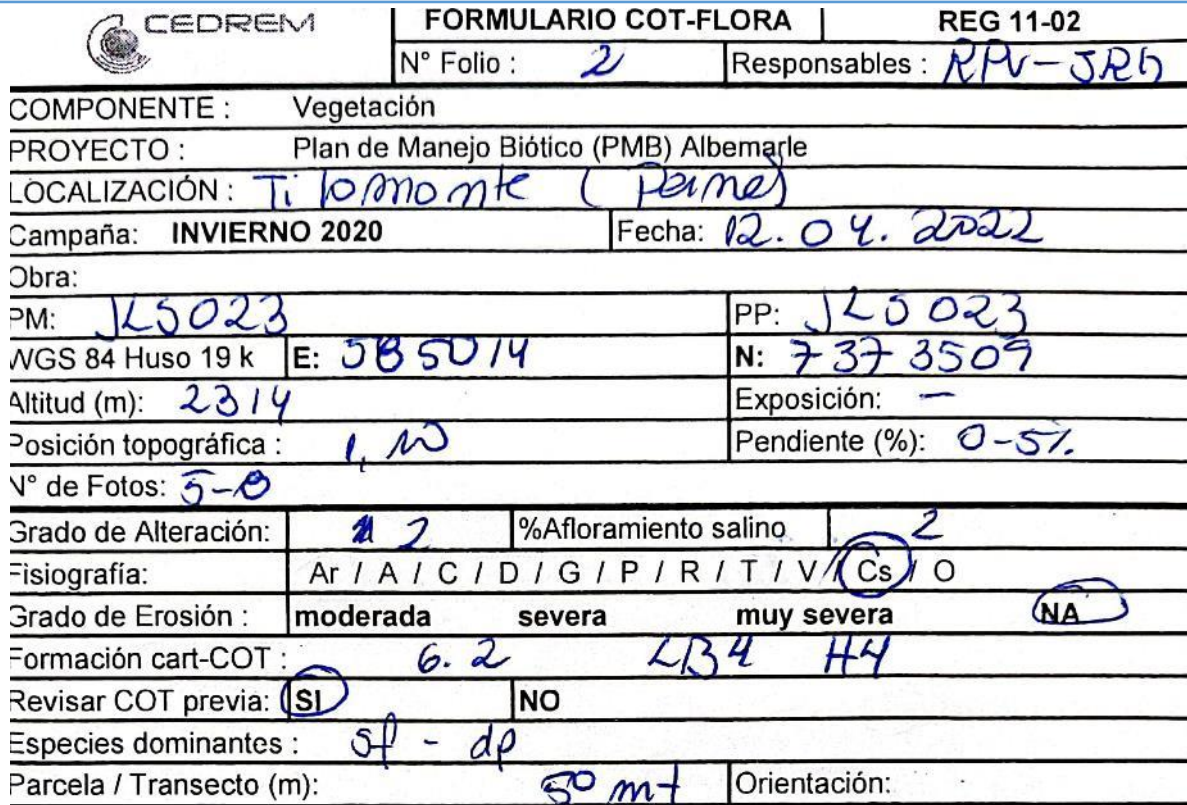 CEDREM FORMULARIO COT-FLORA REG 11-02
N° Folio : 2 Responsables : RPV-JRG
COMPONENTE : Vegetación
PROYECTO : Plan de Manejo Biótico (PMB) Albemarle
LOCALIZACIÓN : Tilomonte (Peine)
Campaña: INVIERNO 2020 Fecha: 12. 04. 2022
Obra:
PM: JLS023 PP: JLS023
WGS 84 Huso 19 k E: 585014 N: 7373509
Altitud (m): 2314 Exposición: —
Posición topográfica : 1, 10 Pendiente (%): 0-5%
N° de Fotos: 5-8
Grado de Alteración: 2 %Afloramiento salino 2
Fisiografía: Ar / A / C / D / G / P / R / T / V / Cs / O
Grado de Erosión : moderada severa muy severa NA
Formación cart-COT : 6.2 LB4 H4
Revisar COT previa: SI NO
Especies dominantes : sf - dp
Parcela / Transecto (m): 50 mt Orientación: